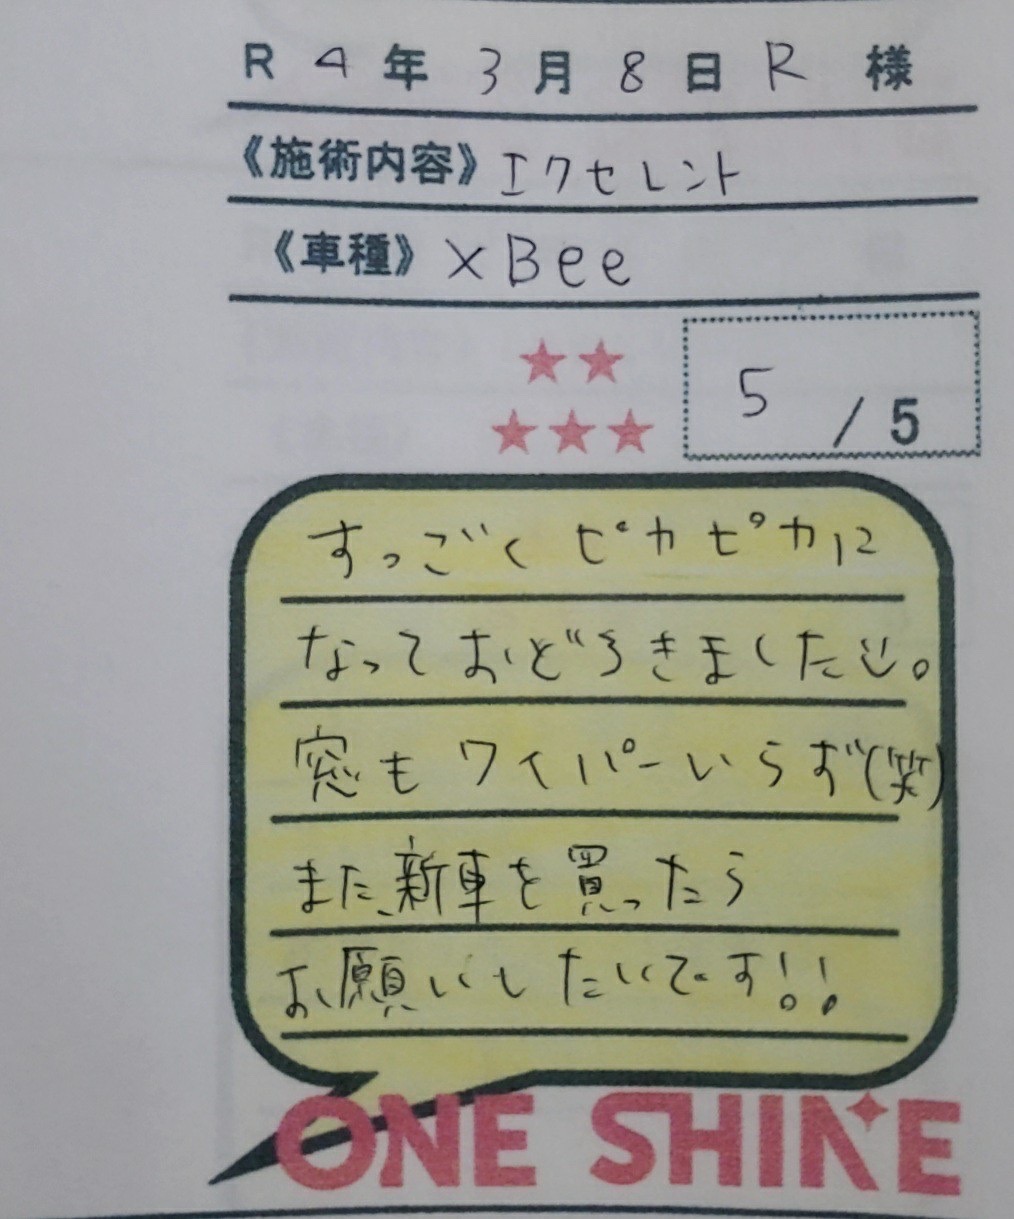 R 4 年 3 月 8 日 R 様
《施術内容》エクセレント
《車種》XBee
5 / 5
すっごくピカピカに
なっておどろきました。
窓もワイパーいらず(笑)
また、新車を買ったら
お願いしたいです!!
ONE SHINE